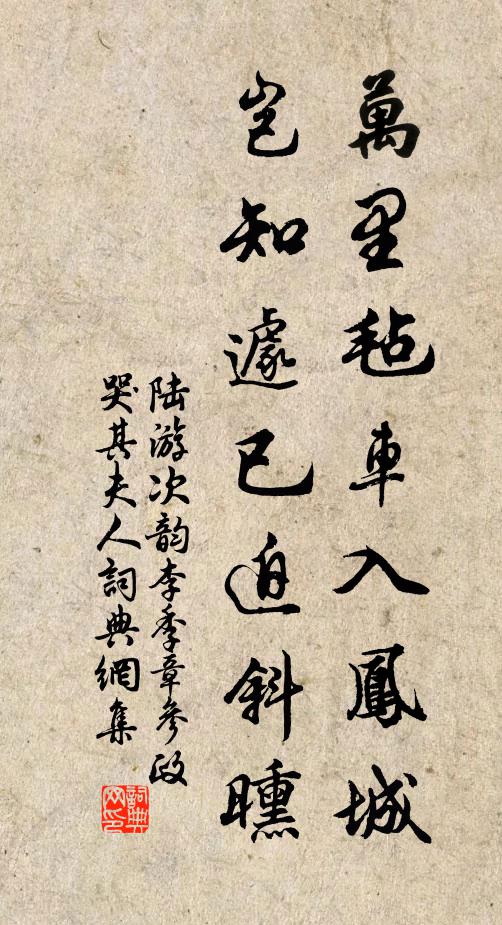 萬里毡車入鳳城
岂知遽已迫斜曛
陆游次韵李季章參政
哭其夫人詞典網集
詞典
网印